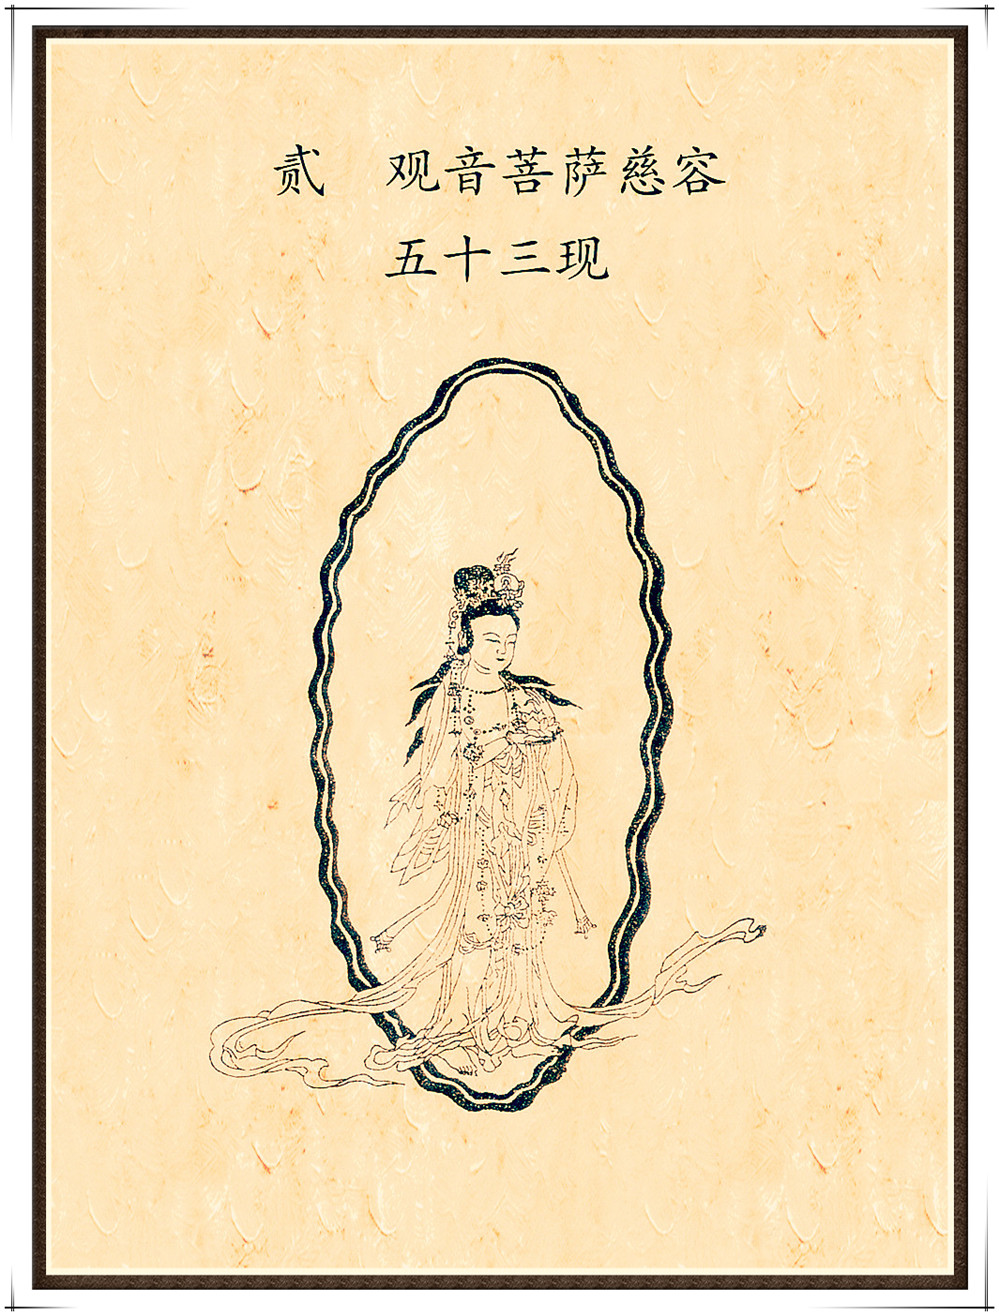 贰 观音菩萨慈容
五十三现